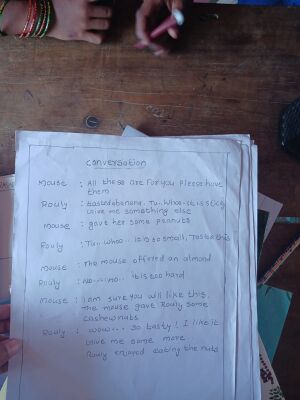 conversation
Mouse : All these are for you please have
them
Rouly : tasted banana. Tu.. Whoo. It is sticky
Give me something else
Mouse : gave her some peanuts
Rouly : Tu.. whoo... it is so small, Tasta this
Mouse : The mouse offered an almond
Rouly : No..... no... it is too hard
Mouse : I am sure you will like this.
The mouse gave Rouly some
cashewnuts
Rouly : wow... so tasty! I like it
Give me some more
Rouly enjoyed eating the nuts